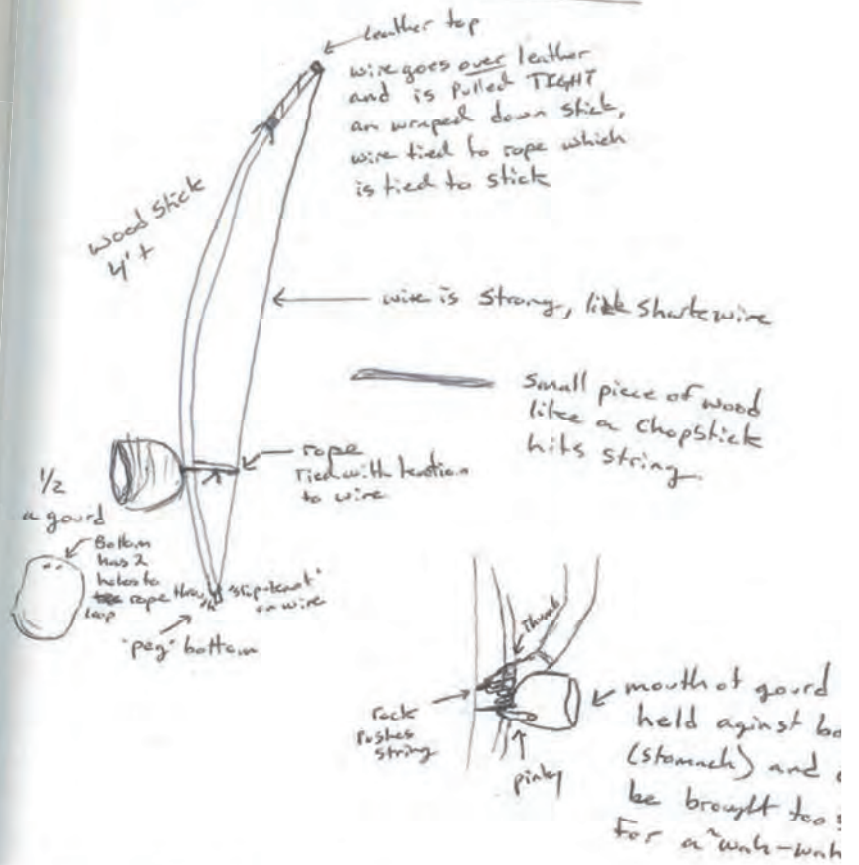 leather top
wire goes over leather
and is Pulled TIGHT
an wraped down stick,
wire tied to rope which
is tied to stick
wood stick
4't
wire is Strong, like Sharkewire
Small piece of wood
like a chopstick
hits string
rope
Tied with tention
to wire
1/2
a gourd
Bottom
has 2
holes to
rope thru
loop
"slip-knot"
on wire
"peg" bottom
Thumb
rock
Pushes
String
pinky
mouth of gourd
held aginst
(stomach) and
be brought too
For a "wah-wah